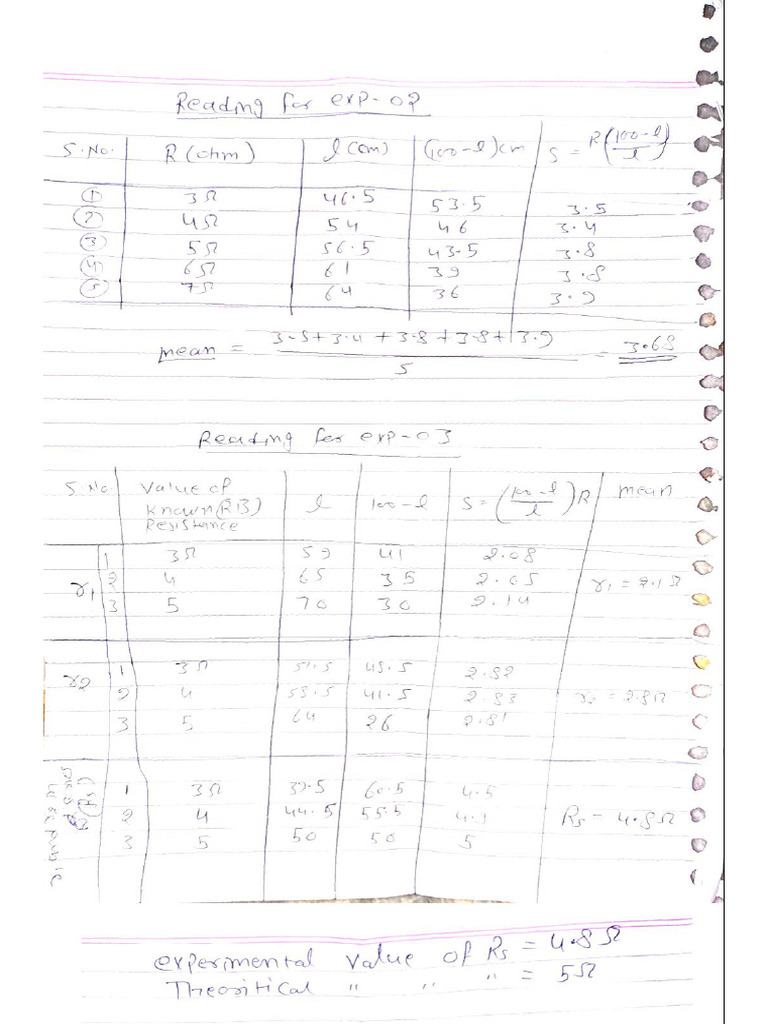 Reading for exp-02
S.No. R (ohm) l (cm) (100-l) cm S = R(100-l/l)
① 3Ω 46.5 53.5 3.5
② 4Ω 54 46 3.4
③ 5Ω 56.5 43.5 3.8
④ 6Ω 61 39 3.8
⑤ 7Ω 64 36 3.9
mean = 3.5+3.4+3.8+3.8+3.9/5 = 3.68
Reading for exp-03
S.No Value of Known(RB) Resistance l 100-l S = (100-l/l)R mean
1 3Ω 59 41 2.08
r1 2 4 65 35 2.05 r1 = 2.1Ω
3 5 70 30 2.14
1 3Ω 51.5 48.5 2.82
r2 2 4 58.5 41.5 2.83 r2 = 2.8Ω
3 5 64 26 2.81
1 3Ω 39.5 60.5 4.5
2 4 44.5 55.5 4.9 Rs = 4.8Ω
3 5 50 50 5
experimental value of Rs = 4.8Ω
Theoritical " " " = 5Ω